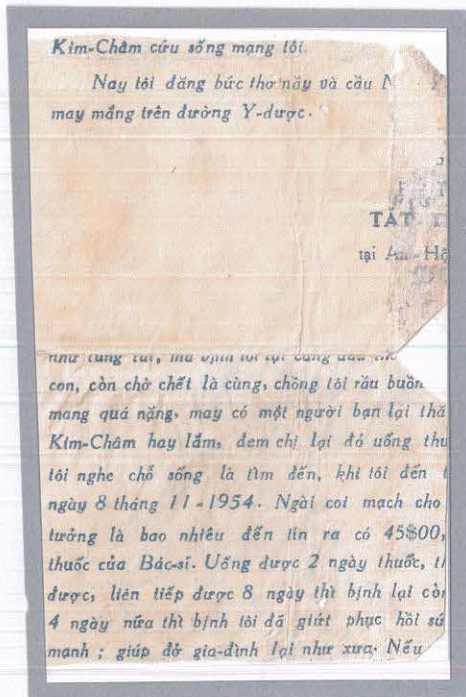 Kim-Châm cứu sống mạng tôi.
Nay tôi đăng bức thơ nầy và cầu
may mắng trên đường Y-dược.
TẤT
tại An-Hộ
con, còn chờ chết là cùng, chồng tôi rầu buồn
mang quá nặng, may có một người bạn lại thă
Kim-Châm hay lắm, đem chị lại đó uống thu
tôi nghe chỗ sống là tìm đến, khi tôi đến
ngày 8 tháng 11-1954. Ngài coi mạch cho
tưởng là bao nhiêu đến tín ra có 45$00,
thuốc của Bác-sĩ. Uống được 2 ngày thuốc,
được, liên tiếp được 8 ngày thì bịnh lại cò
4 ngày nữa thì bịnh tôi đã giứt phục hồi sứ
mạnh ; giúp đở gia-đình lại như xưa. Nếu